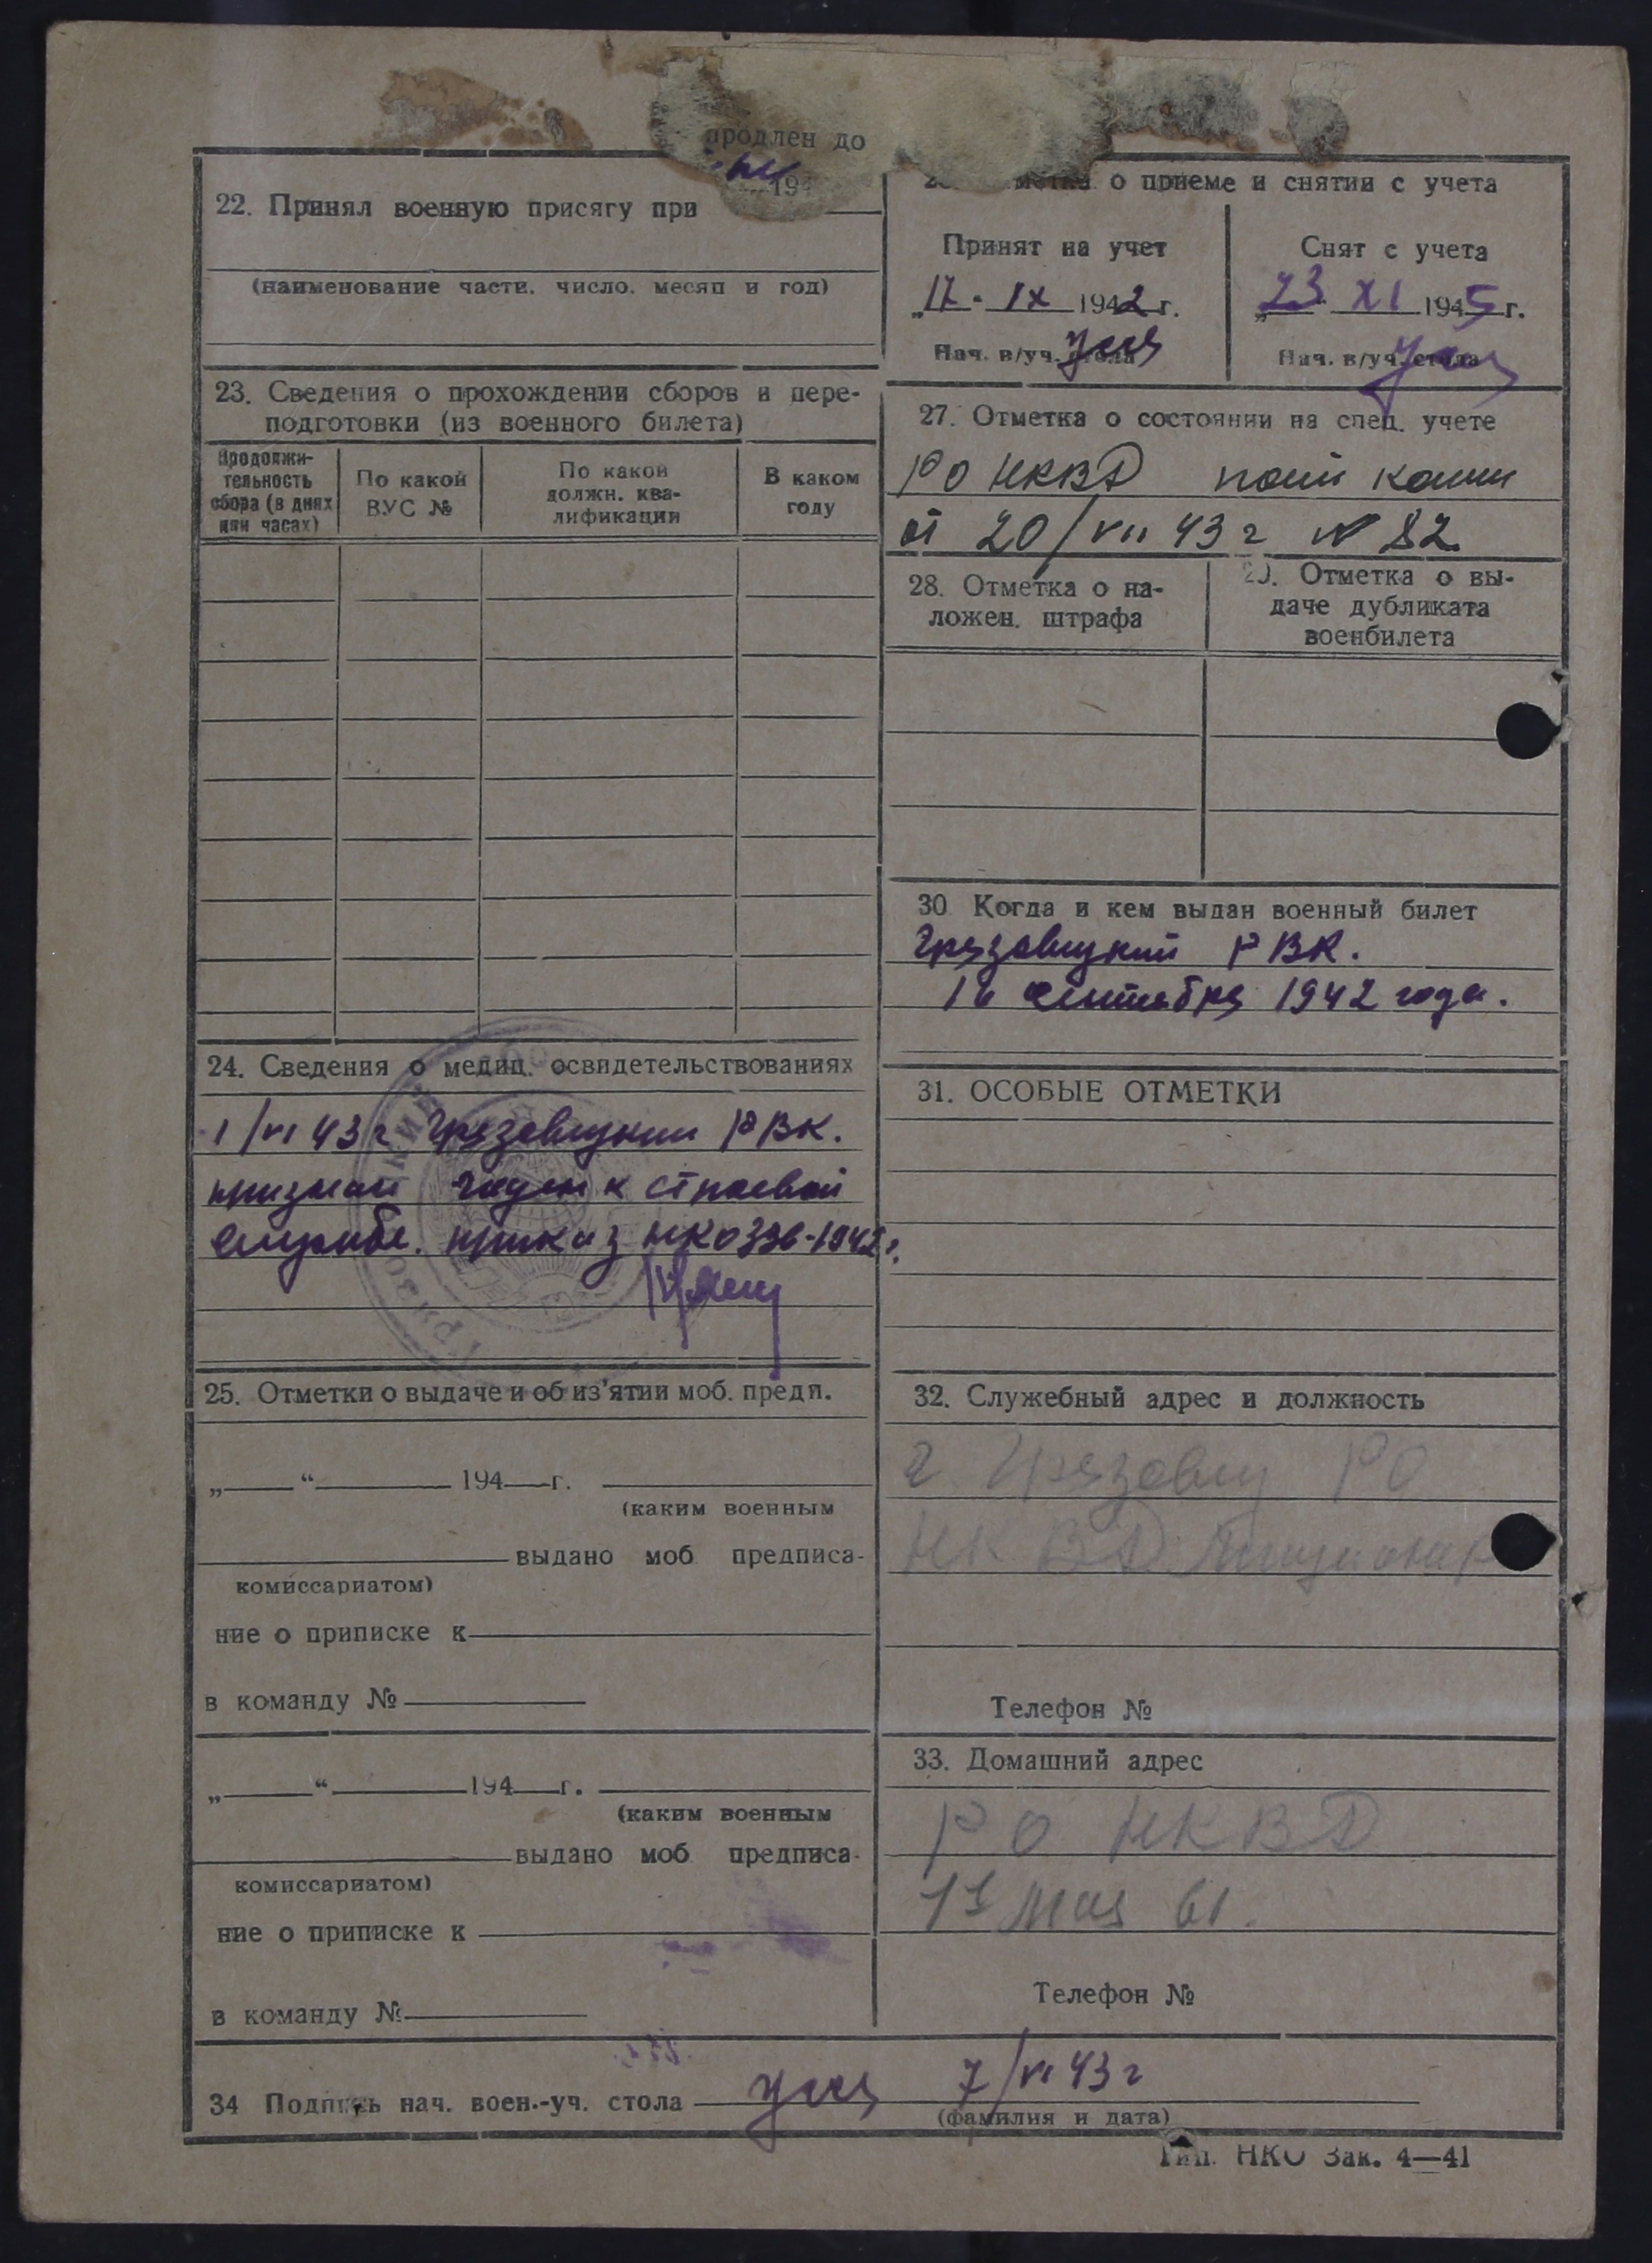 продлен до
194
22. Принял военную присягу при
(наименование части. число. месяц и год)
23. Сведения о прохождении сборов и пере-
подготовки (из военного билета)
Продолжи-
тельность
сбора (в днях
или часах)
По какой
ВУС №
По какой
должн. ква-
лификации
В каком
году
24. Сведения о медиц. освидетельствованиях
1/VI 43 г Грязовецким РВК.
признан годен к строевой
службе. приказ НКО 336-1942 г.
25. Отметки о выдаче и об из'ятии моб. предп.
„ “ 194 г.
(каким военным
выдано моб предписа-
комиссариатом)
ние о приписке к
в команду №
„ “ 194 г.
(каким военным
выдано моб предписа-
комиссариатом)
ние о приписке к
в команду №
о приеме и снятии с учета
Принят на учет
„17 - IX 1942 г.
Нач. в/уч. стола
Снят с учета
„23 XI 1945 г.
Нач. в/уч. стола
27. Отметка о состоянии на спец. учете
РО НКВД
от 20/VII 43 г N 82
28. Отметка о на-
ложен. штрафа
29. Отметка о вы-
даче дубликата
военбилета
30 Когда и кем выдан военный билет
Грязовецкий РВК.
16 сентября 1942 года.
31. ОСОБЫЕ ОТМЕТКИ
32. Служебный адрес и должность
г. Грязовец РО
НКВД
Телефон №
33. Домашний адрес
РО НКВД
1е Мая 61.
Телефон №
34 Подпись нач. воен.-уч. стола 7/VI 43 г
(фамилия и дата)
Тип. НКО Зак. 4—41